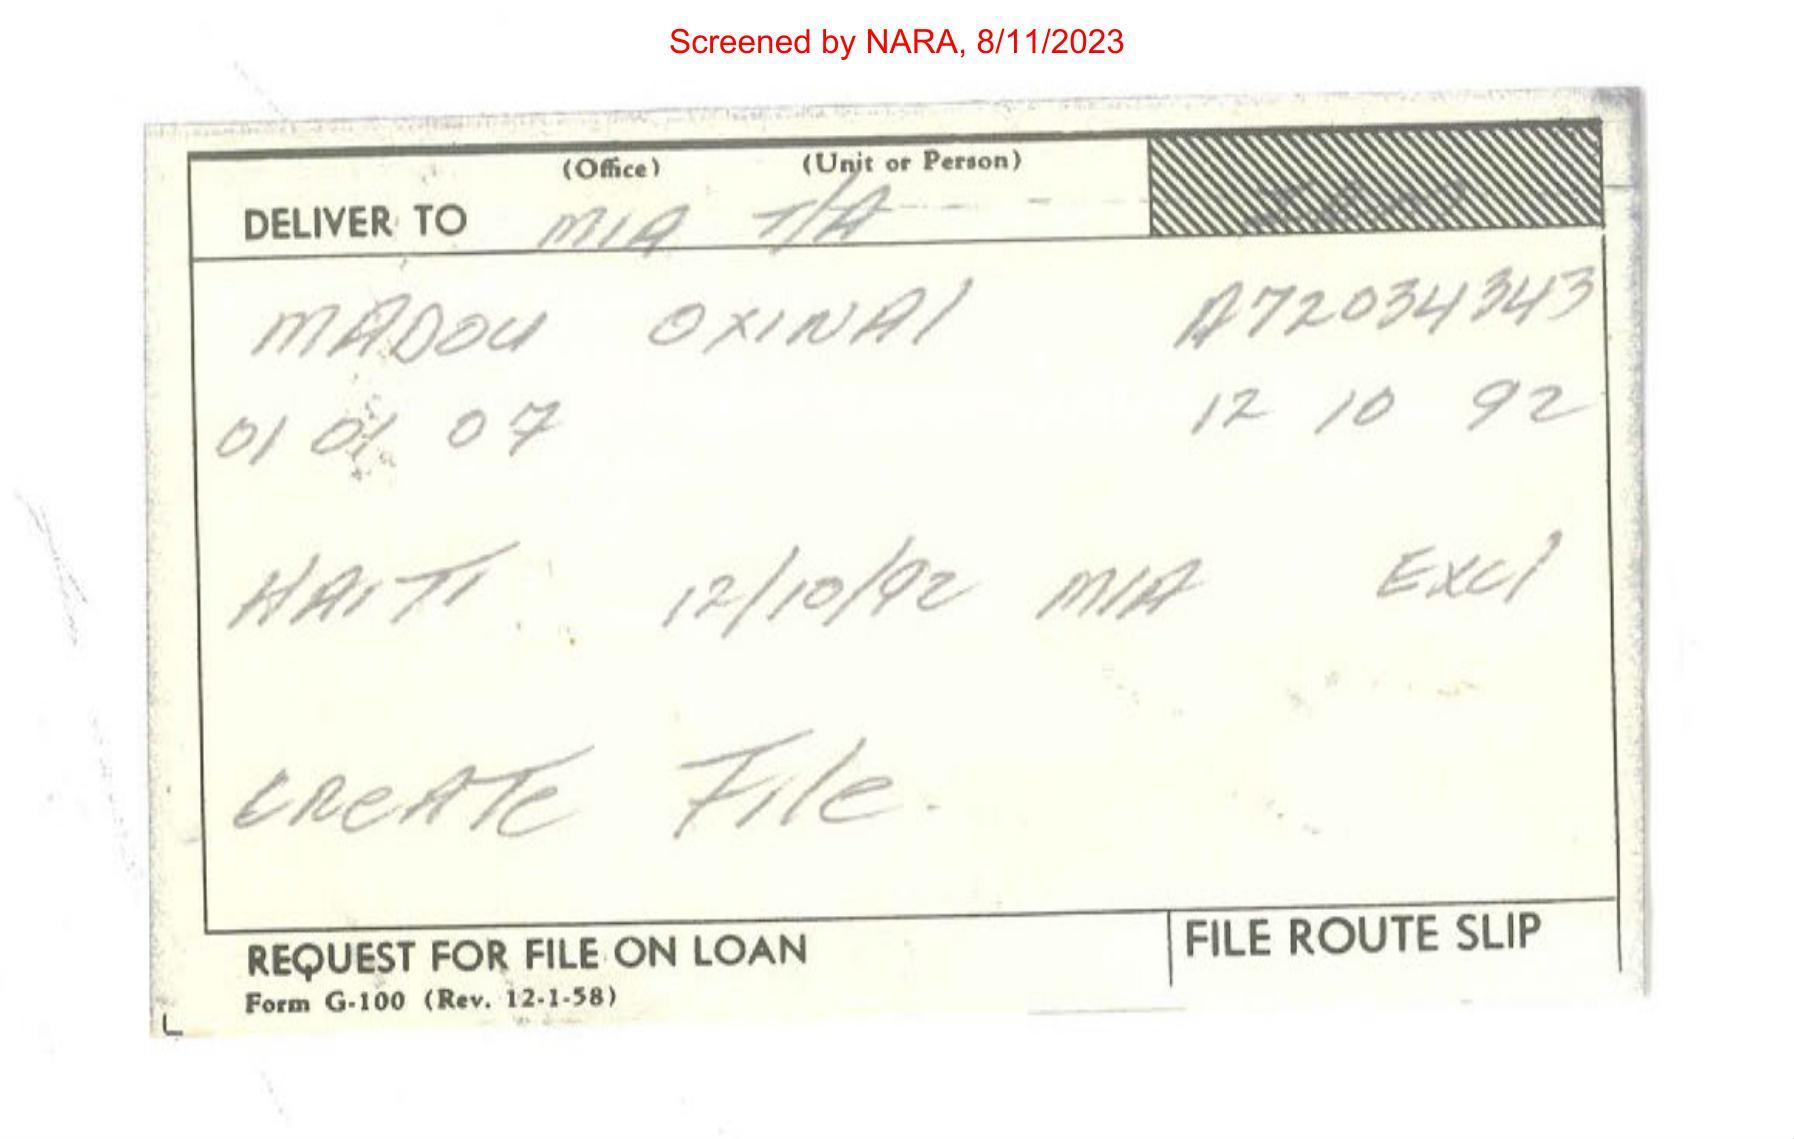 Screened by NARA, 8/11/2023
(Office) (Unit or Person)
DELIVER TO MIA T/A
MADOU OXINAI A72034343
01 01 07 12 10 92
HAITI 12/10/92 MIA Excl
CREATE File.
REQUEST FOR FILE ON LOAN FILE ROUTE SLIP
Form G-100 (Rev. 12-1-58)